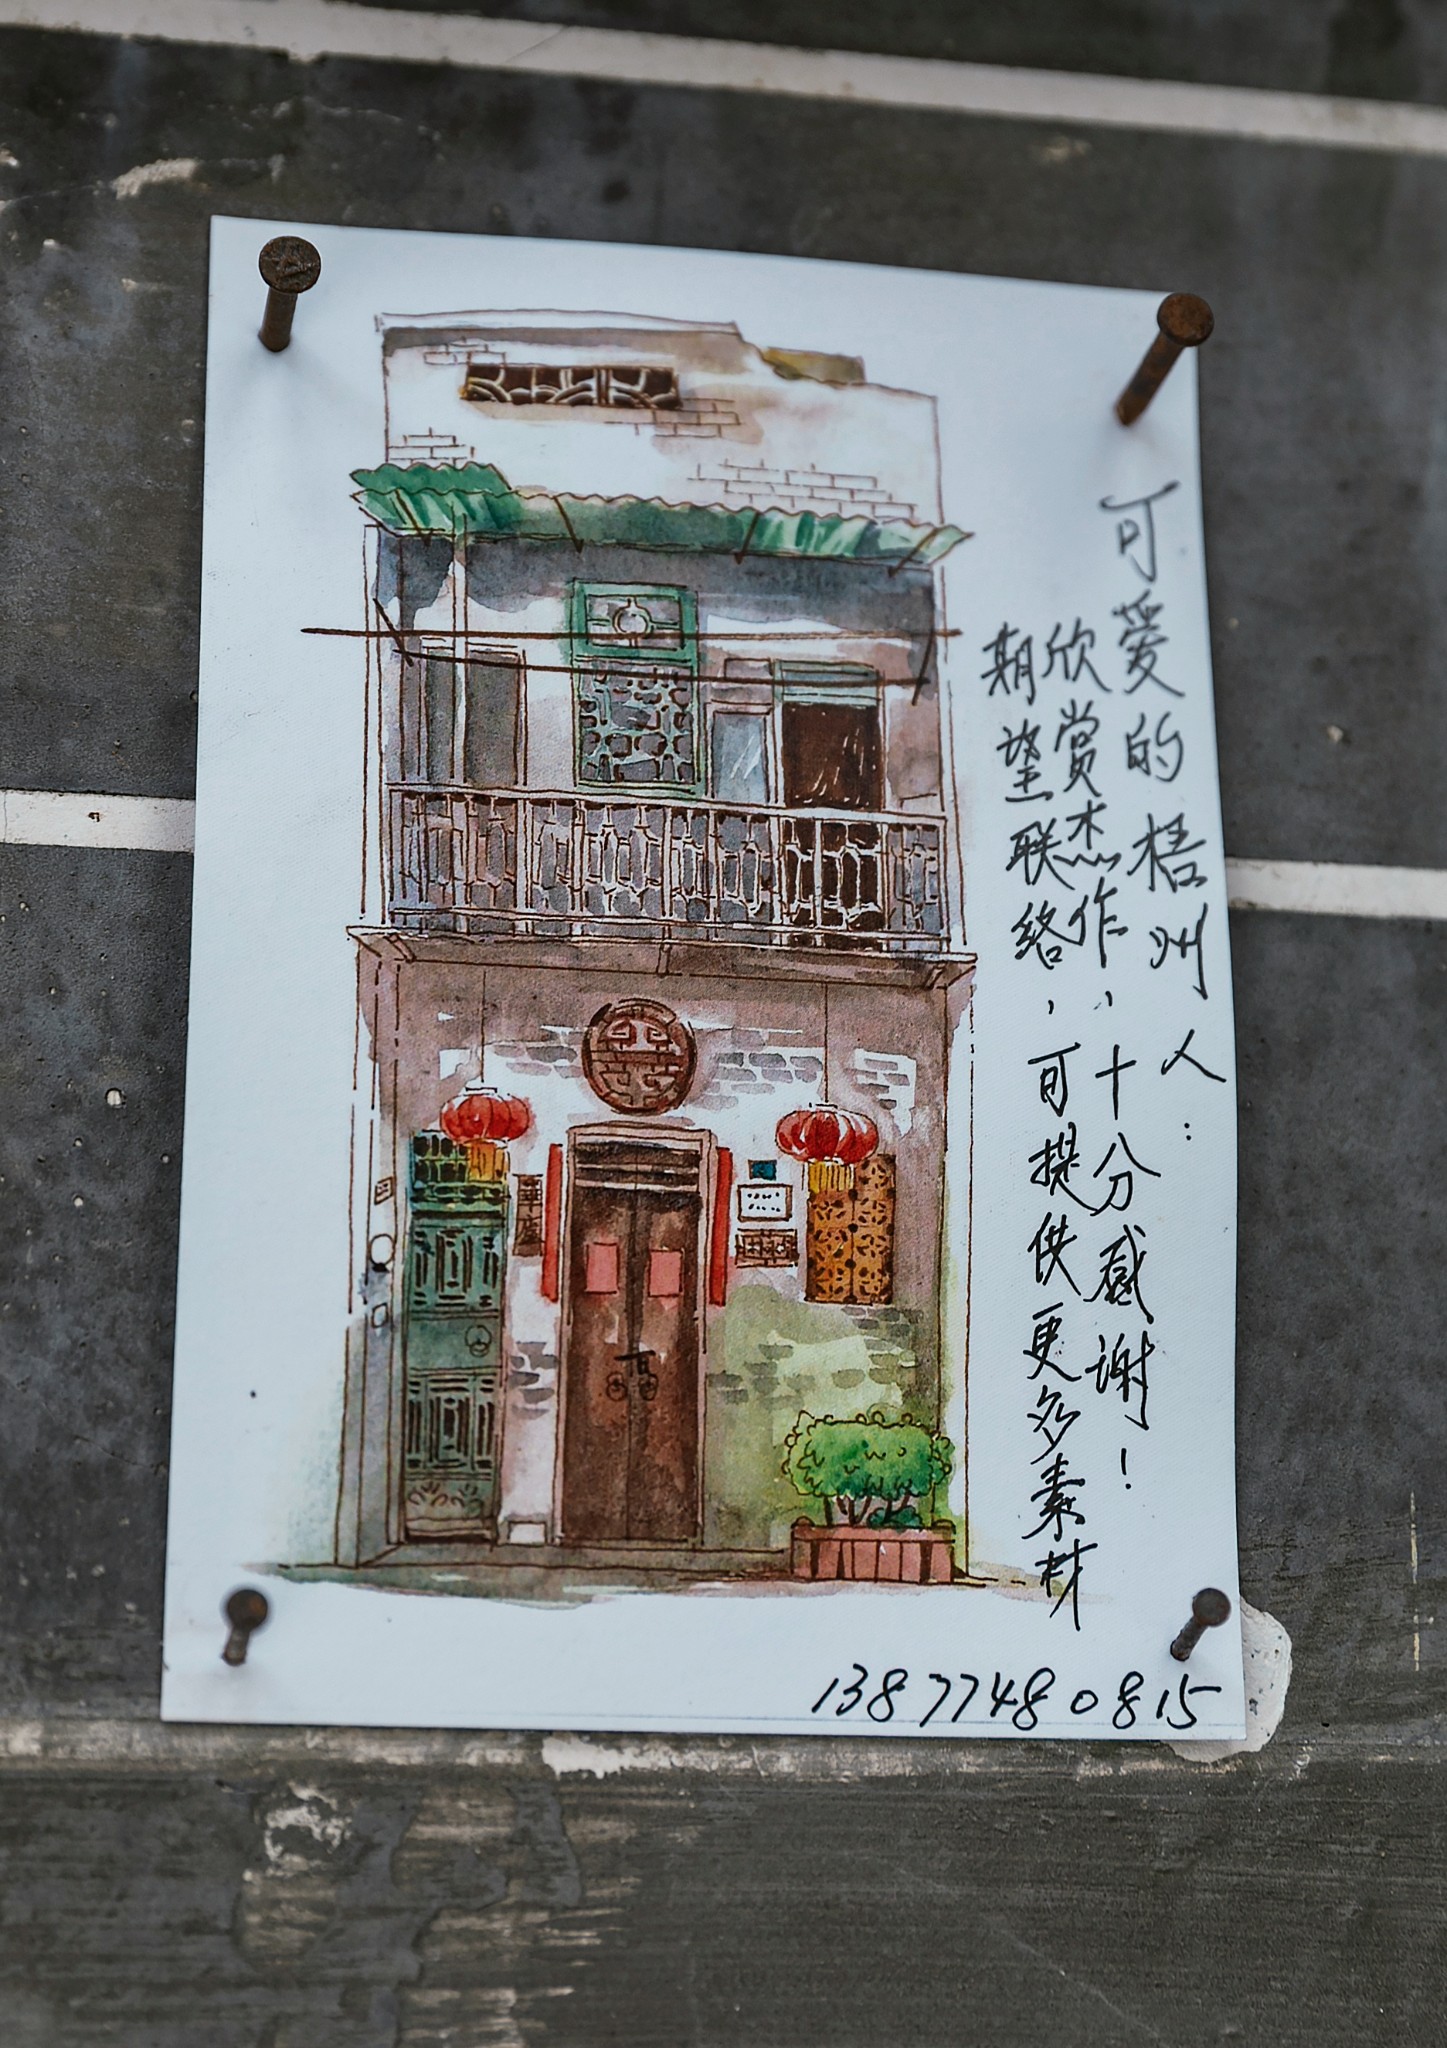 可爱的梧州人：
欣赏杰作，十分感谢！
期望联络，可提供更多素材
13877480815